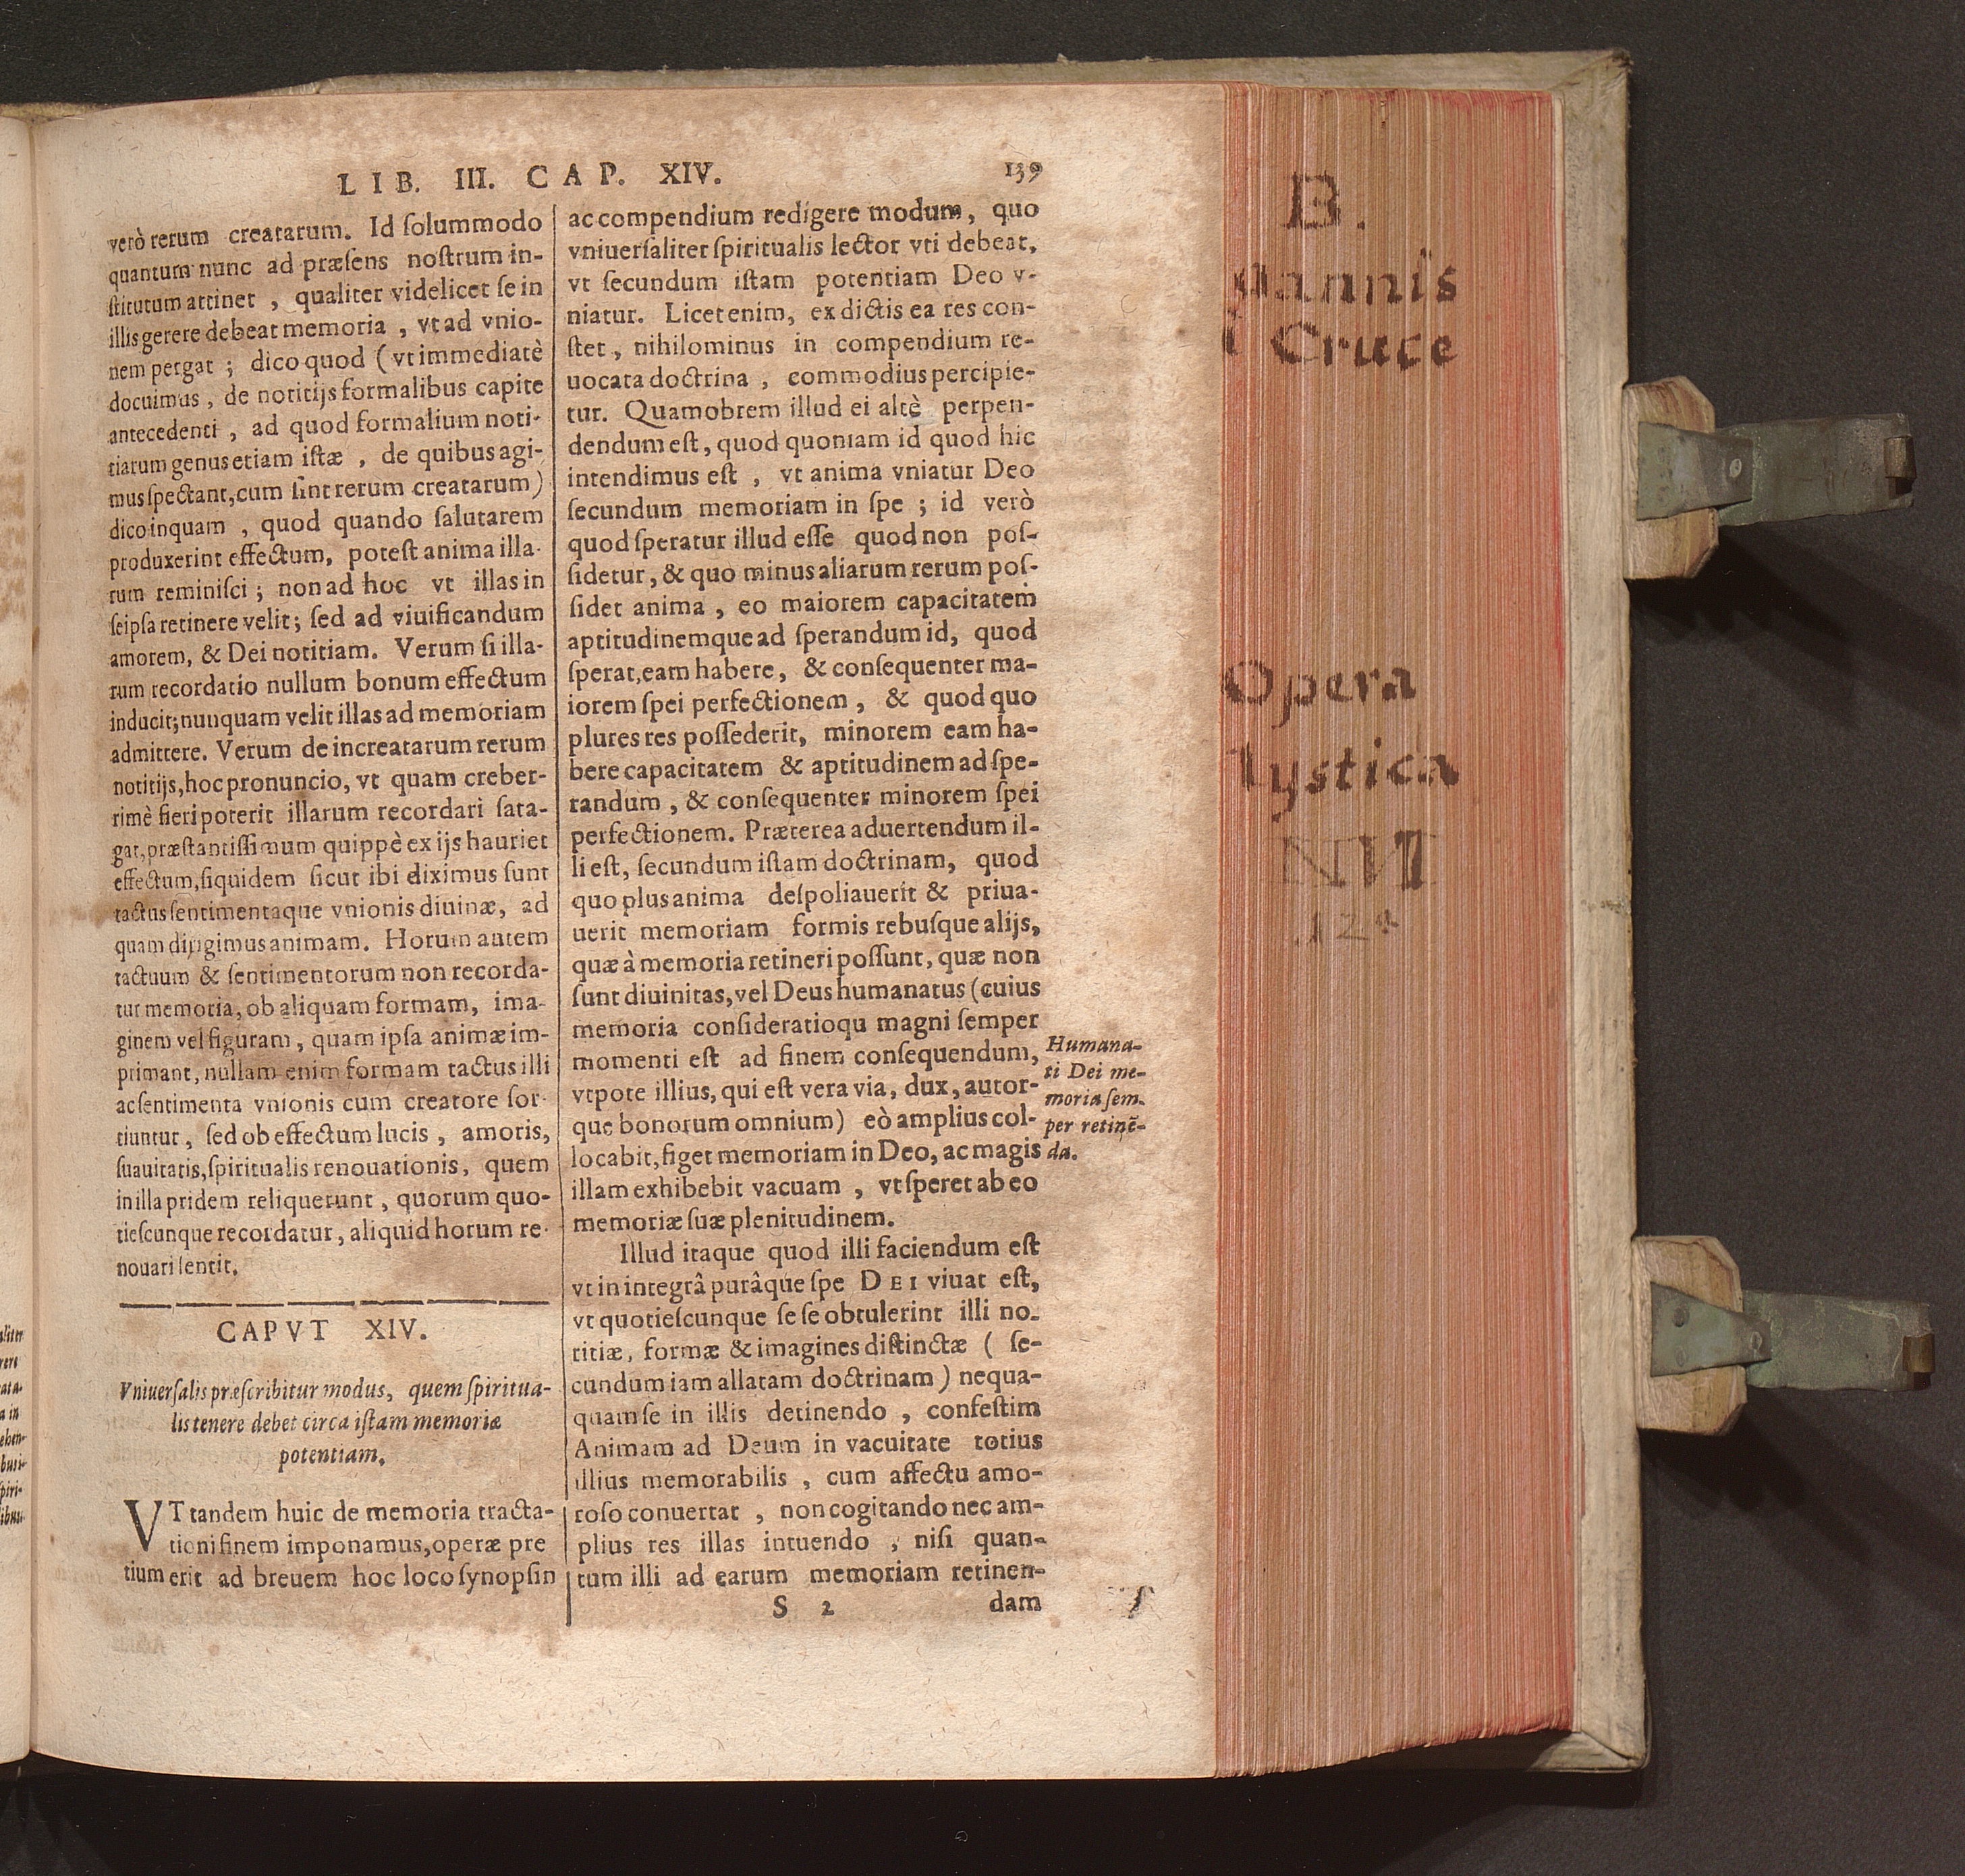 LIB. III. CAP. XIV. 139
verò rerum creatarum. Id ſolummodo
quantum nunc ad præſens noſtrum in-
ſtitutum attinet , qualiter videlicet ſe in
illis gerere debeat memoria , vt ad vnio-
nem pergat ; dico quod ( vt immediatè
docuimus , de notitijs formalibus capite
antecedenti , ad quod formalium noti-
tiarum genus etiam iſtæ , de quibus agi-
mus ſpectant, cum ſint rerum creatarum)
dico inquam , quod quando ſalutarem
produxerint effectum, poteſt anima illa-
rum reminiſci ; non ad hoc vt illas in
ſeipſa retinere velit ; ſed ad viuificandum
amorem, & Dei notitiam. Verum ſi illa-
rum recordatio nullum bonum effectum
inducit; nunquam velit illas ad memoriam
admittere. Verum de increatarum rerum
notitijs, hoc pronuncio, vt quam creber-
rimè fieri poterit illarum recordari ſata-
gat, præſtantiſſimum quippè ex ijs hauriet
effectum, ſiquidem ſicut ibi diximus ſunt
tactus ſentimentaque vnionis diuinæ, ad
quam dirigimus animam. Horum autem
tactuum & ſentimentorum non recorda-
tur memoria, ob aliquam formam, ima-
ginem vel figuram , quam ipſa animæ im-
primant, nullam enim formam tactus illi
ac ſentimenta vnionis cum creatore ſor-
tiuntur , ſed ob effectum lucis , amoris,
ſuauitatis, ſpiritualis renouationis, quem
in illa pridem reliquerunt , quorum quo-
tieſcunque recordatur , aliquid horum re-
nouari ſentit.
CAPVT XIV.
Vniuerſalis præſcribitur modus, quem ſpiritua-
lis tenere debet circa iſtam memoriæ
potentiam.
VT tandem huic de memoria tracta-
tioni finem imponamus, operæ pre
tium erit ad breuem hoc loco ſynopſin
ac compendium redigere modum, quo
vniuerſaliter ſpiritualis lector vti debeat,
vt ſecundum iſtam potentiam Deo v-
niatur. Licet enim, ex dictis ea res con-
ſtet , nihilominus in compendium re-
uocata doctrina , commodius percipie-
tur. Quamobrem illud ei altè perpen-
dendum eſt, quod quoniam id quod hic
intendimus eſt , vt anima vniatur Deo
ſecundum memoriam in ſpe ; id verò
quod ſperatur illud eſſe quod non poſ-
ſidetur, & quo minus aliarum rerum poſ-
ſidet anima , eo maiorem capacitatem
aptitudinemque ad ſperandum id, quod
ſperat, eam habere, & conſequenter ma-
iorem ſpei perfectionem , & quod quo
plures res poſſederit, minorem eam ha-
bere capacitatem & aptitudinem ad ſpe-
randum , & conſequenter minorem ſpei
perfectionem. Præterea aduertendum il-
li eſt, ſecundum iſtam doctrinam, quod
quo plus anima deſpoliauerit & priua-
uerit memoriam formis rebuſque alijs,
quæ à memoria retineri poſſunt, quæ non
ſunt diuinitas, vel Deus humanatus (cuius
memoria conſideratioqu magni ſemper
momenti eſt ad finem conſequendum,
vtpote illius, qui eſt vera via, dux, autor-
que bonorum omnium) eò amplius col-
locabit, figet memoriam in Deo, ac magis
illam exhibebit vacuam , vt ſperet ab eo
memoriæ ſuæ plenitudinem.
Illud itaque quod illi faciendum eſt
vt in integrâ purâque ſpe DEI viuat eſt,
vt quotieſcunque ſe ſe obtulerint illi no-
titiæ, formæ & imagines diſtinctæ ( ſe-
cundum iam allatam doctrinam ) nequa-
quam ſe in illis detinendo , confeſtim
Animam ad Deum in vacuitate totius
illius memorabilis , cum affectu amo-
roſo conuertat , non cogitando nec am-
plius res illas intuendo , niſi quan-
tum illi ad earum memoriam retinen-
S 2 dam
Humana-
ti Dei me-
moria ſem-
per retinē-
da.
B.
Cruce
Opera